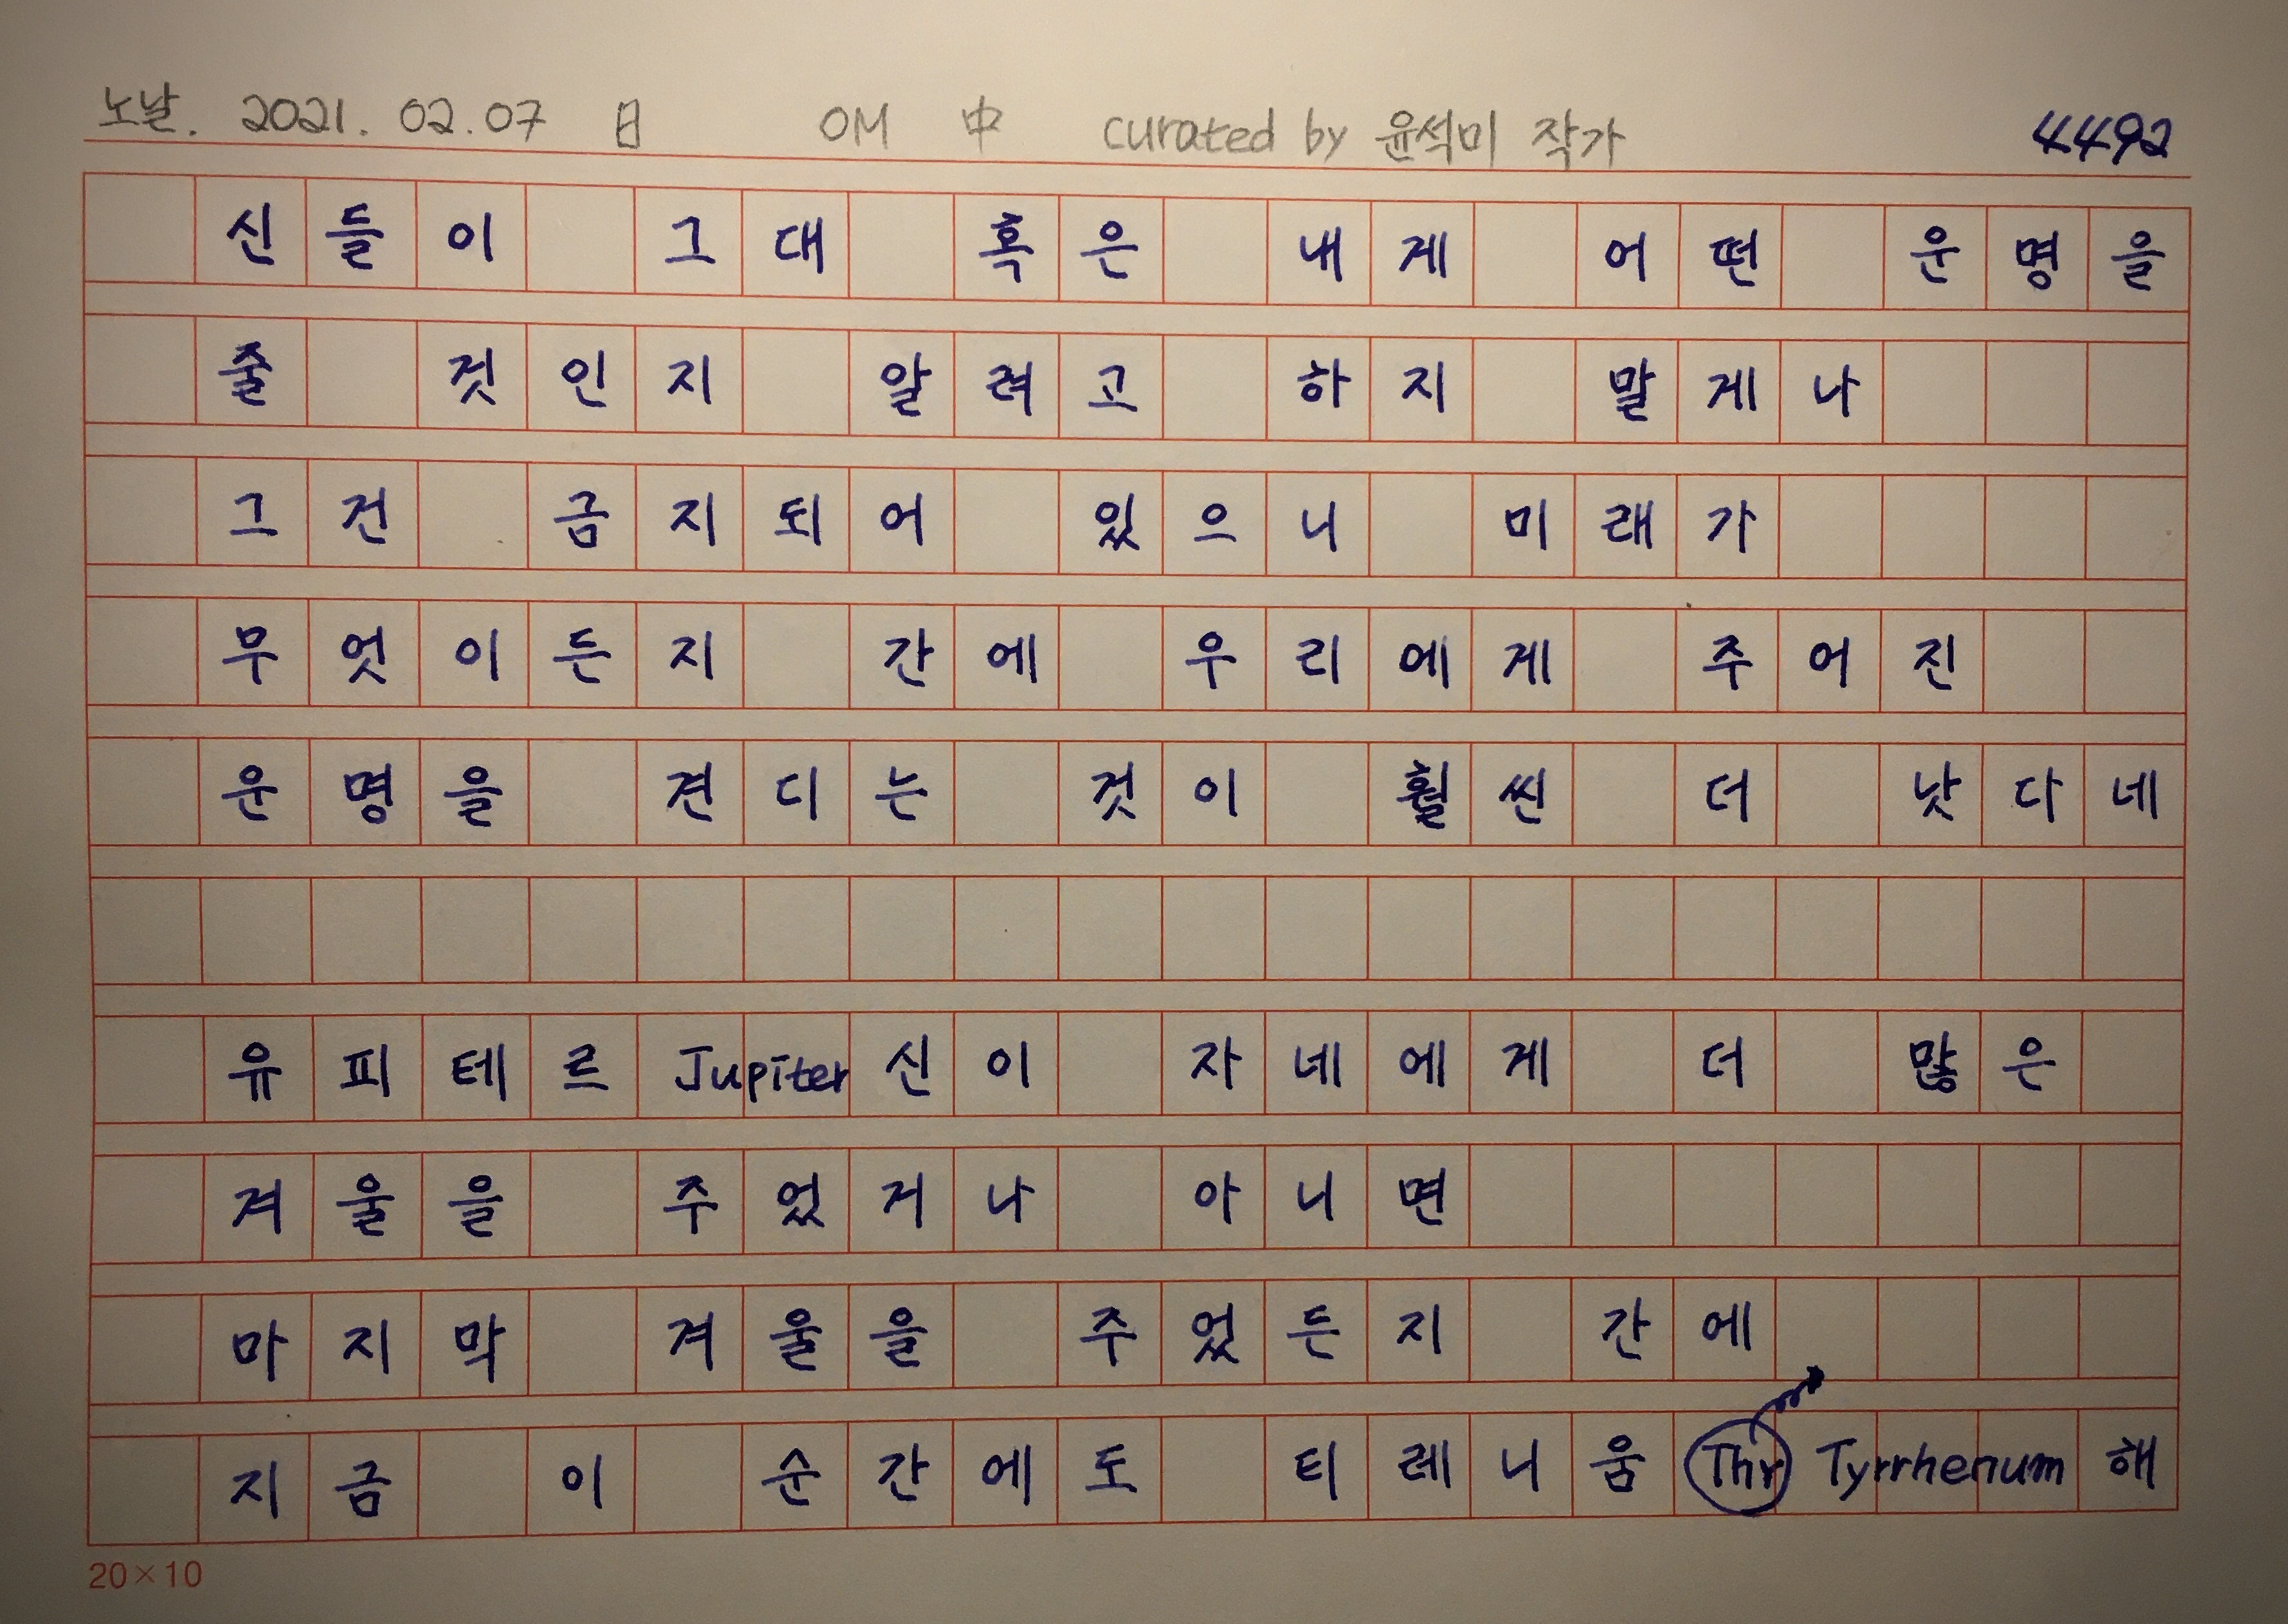 노날. 2021. 02. 07 日 OM 中 curated by 윤석미 작가 4492
신들이 그대 혹은 내게 어떤 운명을
줄 것인지 알려고 하지 말게나
그건 금지되어 있으니 미래가
무엇이든지 간에 우리에게 주어진
운명을 견디는 것이 훨씬 더 낫다네
유피테르 Jupiter 신이 자네에게 더 많은
겨울을 주었거나 아니면
마지막 겨울을 주었든지 간에
지금 이 순간에도 티레니움 Thr Tyrrhenum 해
20×10